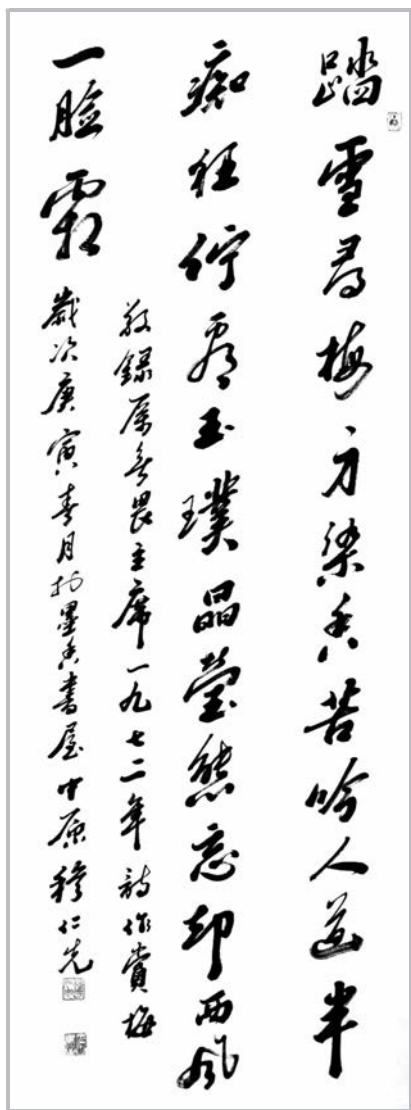 踏雪尋梅方染香苦吟人道半
痴狂佇看玉璞晶瑩態忘却西風
一脸霜
敬錄厲無畏主席一九七二年詩作賞梅
歲次庚寅春月於墨香書屋中原穆仁先